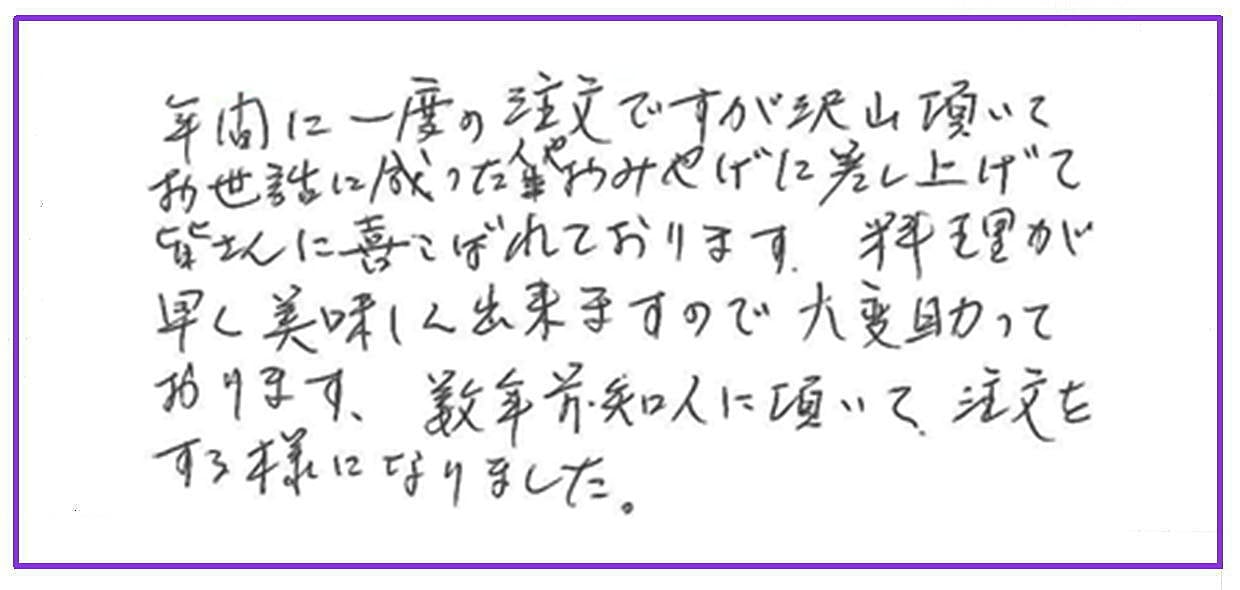 年間に一度の注文ですが沢山頂いて
お世話に成った人やおみやげに差し上げて
皆さんに喜こばれております。料理が
早く美味しく出来ますので大変助かって
おります、数年前知人に頂いて、注文を
する様になりました。